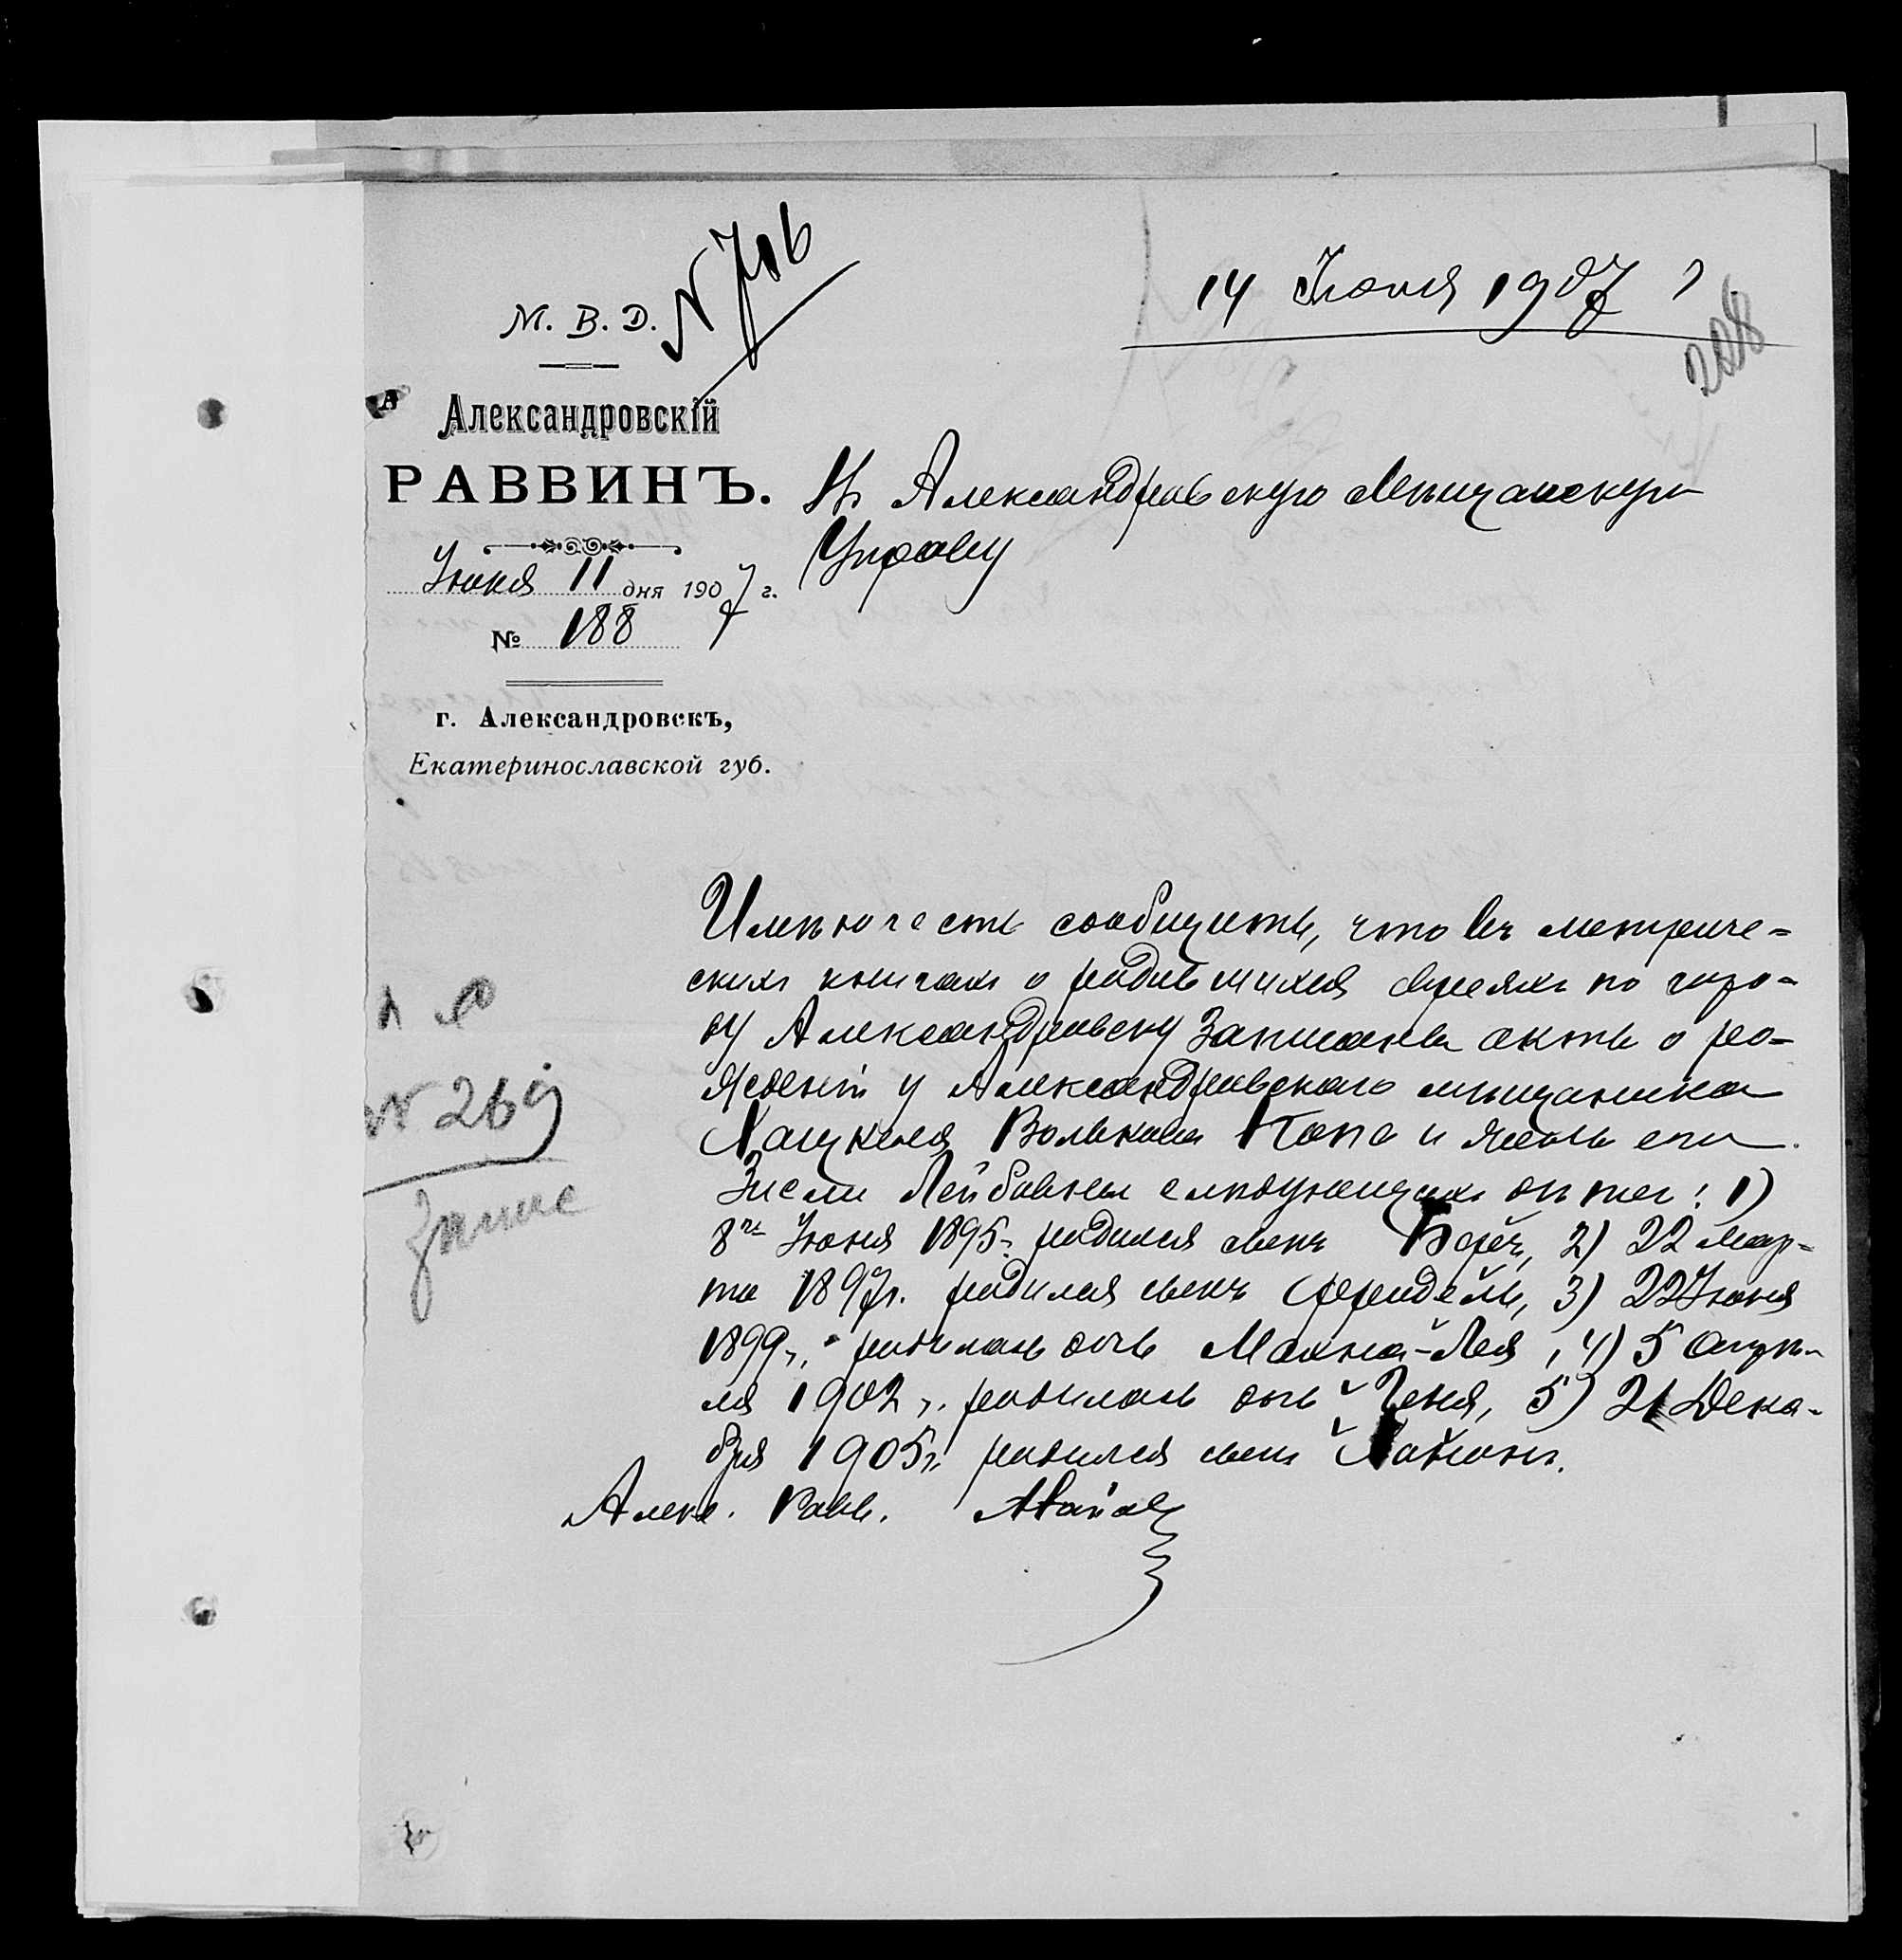 14 Июня 1907 г.
N 706
208
М. В. Д.
Александровскій
РАВВИНЪ.
Июня 11 дня 1907 г.
№ 188
г. Александровскъ,
Екатеринославской губ.
Въ Александровскую Мѣщанскую
Управу
Имѣю честь сообщить, что въ метриче-
скихъ книгахъ о родившихся евреяхъ по горо-
ду Александровску записаны акты о ро-
жденіи у Александровскаго мѣщанина
Хацкеля Волькова Копа и жены его
Зисли Лейбовны слѣдующихъ дѣтей: 1)
8го Июня 1895 г. родился сынъ Беръ, 2) 22 Мар-
та 1897 г. родился сынъ 3) 22 Июня
1899 г. родилась дочь Махна-Лея, 4) 5 Апрѣ-
ля 1902 г. родилась дочь Геня, 5) 21 Дека-
бря 1905 г. родился сынъ
Алекс. Равв.
N 269